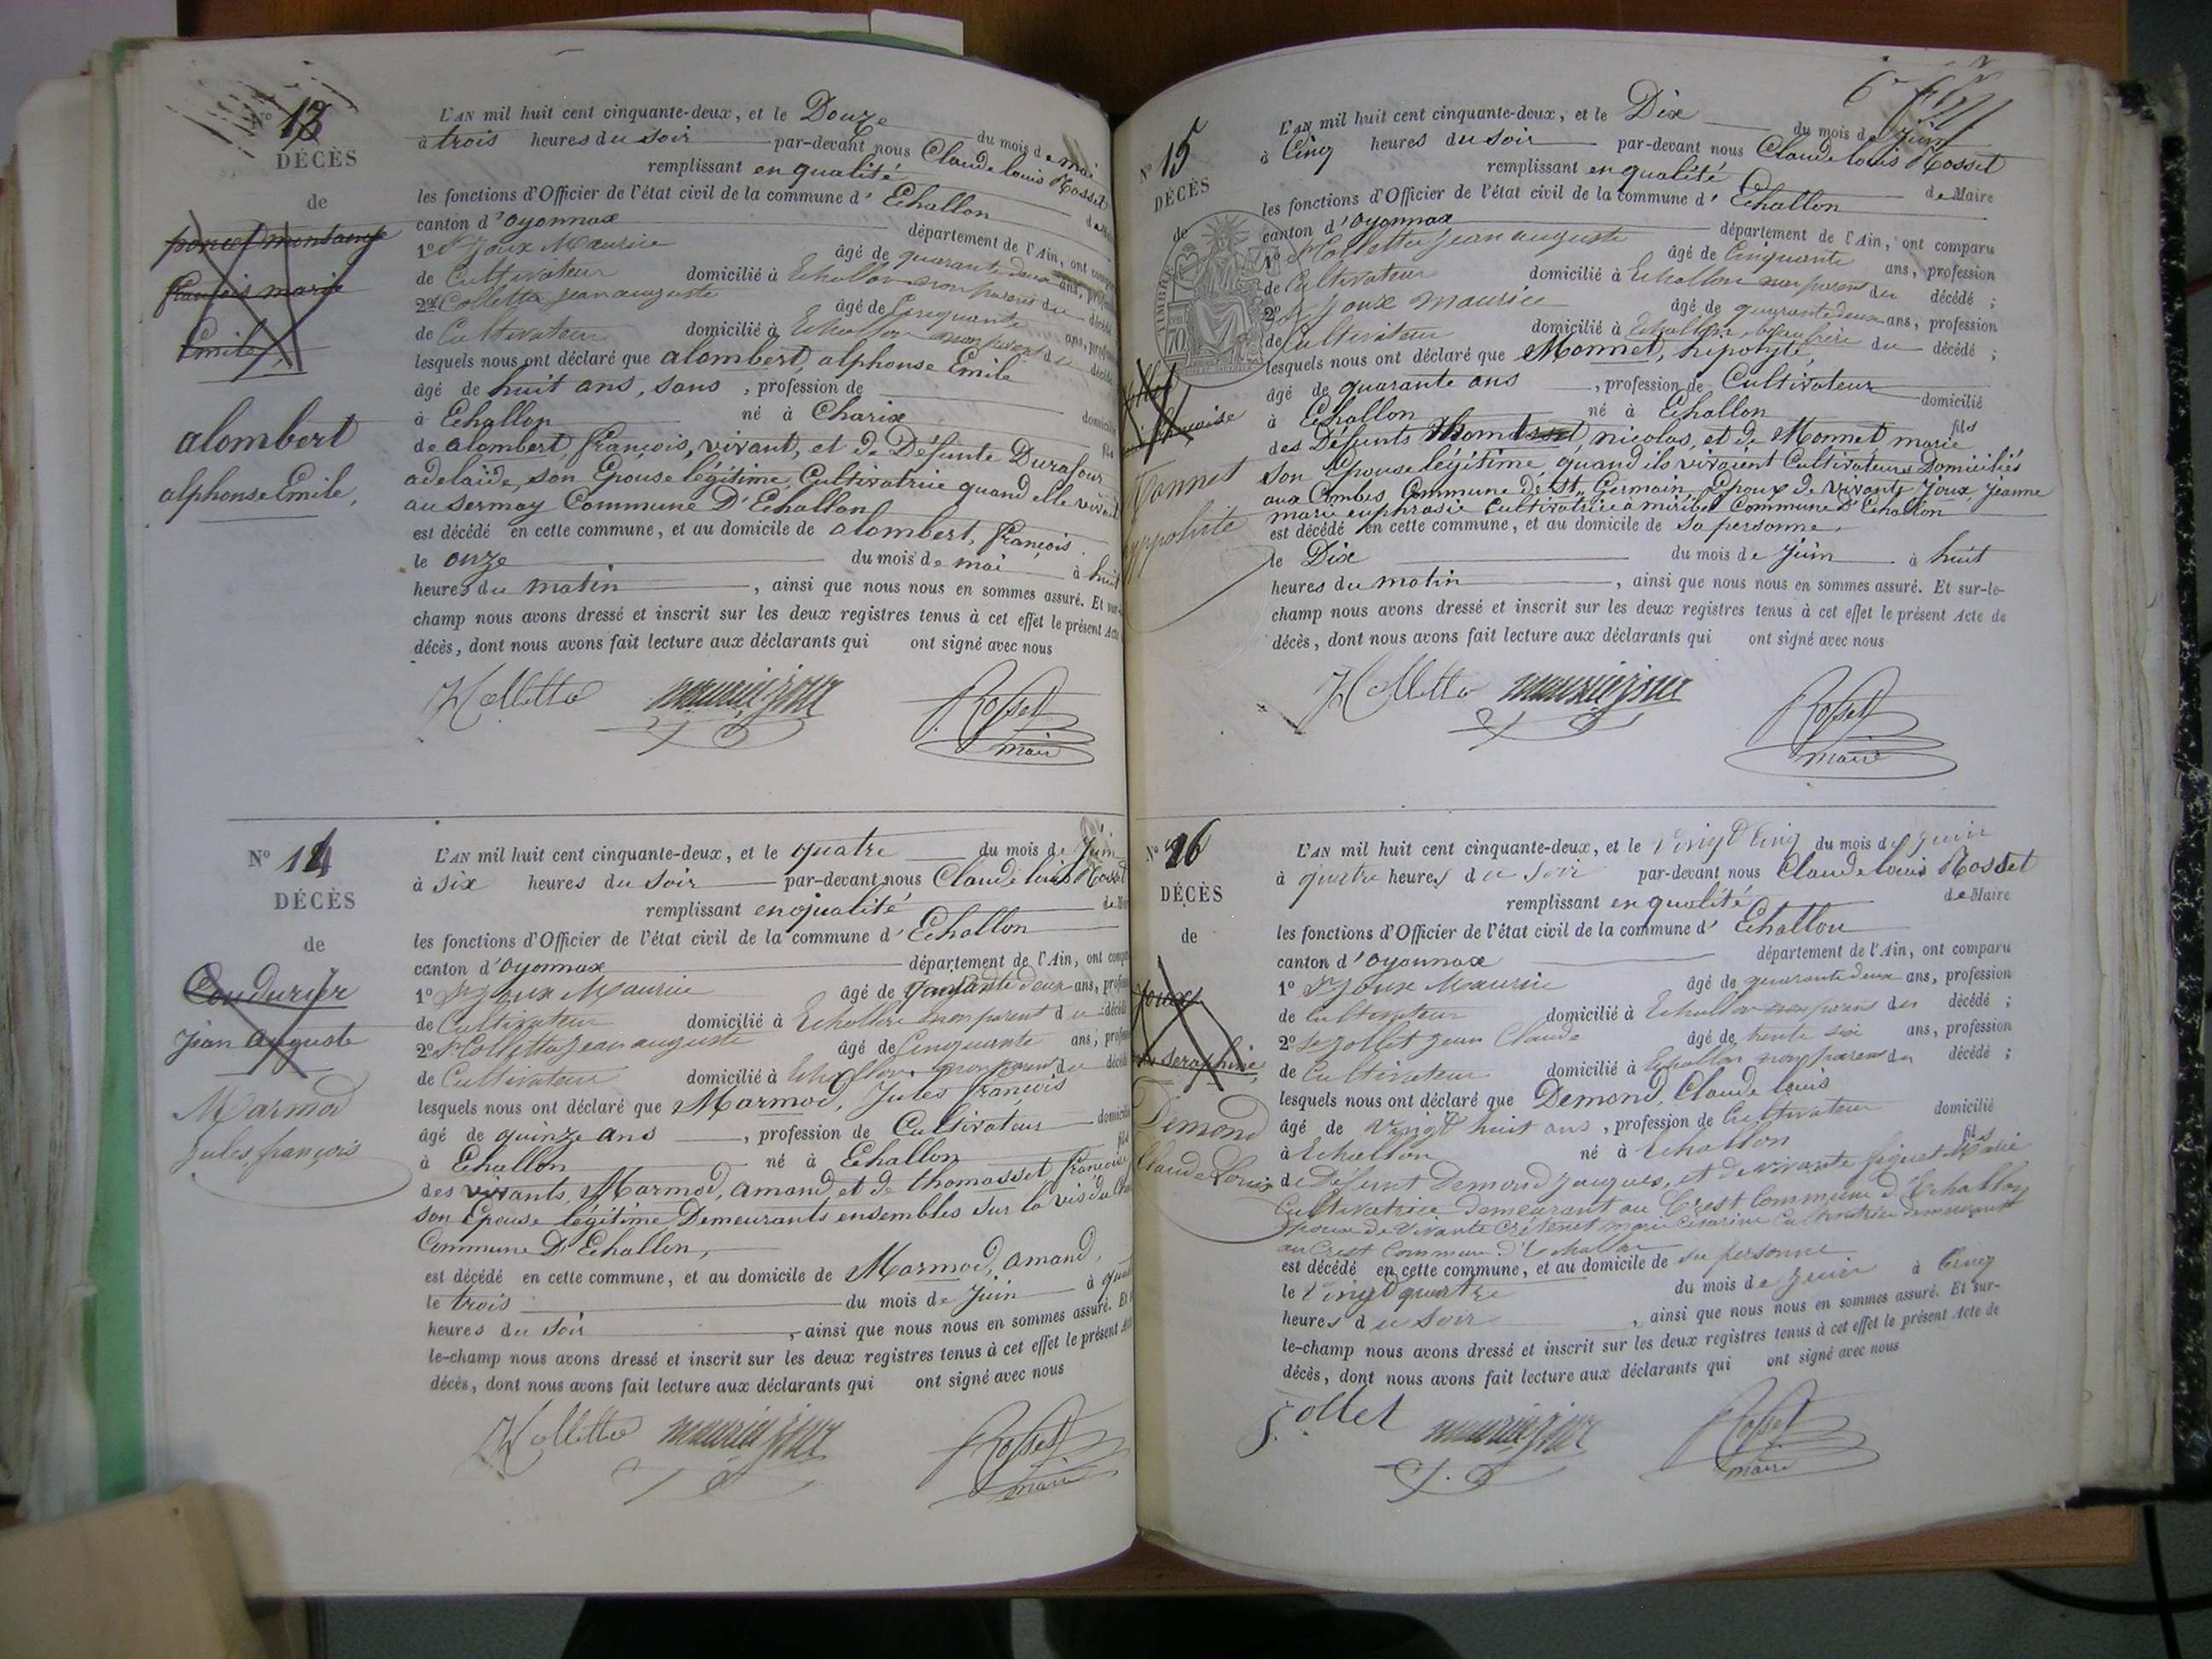 13
DÉCÈS
de
poncet montange
françois marie
Emile
alombert
alphonse Emile,
L'AN mil huit cent cinquante-deux, et le Douze du mois de mai
à trois heures du soir par-devant nous Claude louis Rosset
remplissant en qualité de Maire
les fonctions d'Officier de l'état civil de la commune d' Echallon
canton d'oyonnax département de l'Ain, ont comparu
1º Sr Joux Maurice âgé de quarante deux ans, profession
de Cultivateur domicilié à Echallon non parent du décédé
2º Sr Colletta jean auguste âgé de Cinquante ans, profession
de Cultivateur domicilié à Echallon non parent du décédé
lesquels nous ont déclaré que alombert, alphonse Emile
âgé de huit ans, sans , profession de
à Echallon né à Charix domicilié
fils
de alombert, françois, vivant, et de Défunte Durafour
adelaïde, son Epouse légitime Cultivatrice quand elle vivait
au sermay Commune D'Echallon
est décédé en cette commune, et au domicile de alombert, françois.
le onze du mois de mai à huit
heures du matin , ainsi que nous nous en sommes assuré. Et sur-le-
champ nous avons dressé et inscrit sur les deux registres tenus à cet effet le présent Acte
décès, dont nous avons fait lecture aux déclarants qui ont signé avec nous
Colletta maurice joux Rosset
maire
Nº 14
DÉCÈS
de
Coudurier
jean auguste
Marmod
jules françois
L'AN mil huit cent cinquante-deux, et le quatre du mois de juin
à six heures du soir par-devant nous Claude louis Rosset
remplissant en qualité de Maire
les fonctions d'Officier de l'état civil de la commune d' Echallon
canton d'oyonnax département de l'Ain, ont comparu
1º Sr Joux Maurice âgé de quarante deux ans, profession
de Cultivateur domicilié à Echallon non parent du décédé
2º Sr Colletta jean auguste âgé de Cinquante ans, profession
de Cultivateur domicilié à Echallon non parent du décédé
lesquels nous ont déclaré que Marmod, Jules françois
âgé de quinze ans , profession de Cultivateur domicilié
à Echallon né à Echallon fils
des vivants, Marmod, amand et de thomasset françoise
son Epouse légitime Demeurants ensembles sur la vis du
Commune D'Echallon,
est décédé en cette commune, et au domicile de Marmod, amand,
le trois du mois de juin à quatre
heures du soir , ainsi que nous nous en sommes assuré. Et
le-champ nous avons dressé et inscrit sur les deux registres tenus à cet effet le présent Acte
décès, dont nous avons fait lecture aux déclarants qui ont signé avec nous
Colletta maurice joux Rosset
maire
Nº 15
DÉCÈS
de
TIMBRE
70
françoise
Monnet
hyppolite
L'AN mil huit cent cinquante-deux, et le Dix du mois de Juin
à Cinq heures du soir par-devant nous Claude louis Rosset
remplissant en qualité de Maire
les fonctions d'Officier de l'état civil de la commune d' Echallon
canton d'oyonnax département de l'Ain, ont comparu
1º Sr Colletta jean auguste âgé de Cinquante ans, profession
de Cultivateur domicilié à Echallon non parent du décédé ;
2º Sr Joux maurice âgé de quarante deux ans, profession
de Cultivateur domicilié à Echallon, beau frère du décédé ;
lesquels nous ont déclaré que Monnet, hipolyte,
âgé de quarante ans , profession de Cultivateur domicilié
à Echallon né à Echallon fils
des Défunts Thomasset, nicolas, et de Monnet, marie
son Epouse légitime, quand ils vivaient Cultivateurs Domiciliés
aux Combes, Commune de St Germain, Epoux de vivante Joux, jeanne
marie euphrasie Cultivatrice à miribel Commune D'Echallon
est décédé en cette commune, et au domicile de sa personne,
le Dix du mois de juin à huit
heures du matin , ainsi que nous nous en sommes assuré. Et sur-le-
champ nous avons dressé et inscrit sur les deux registres tenus à cet effet le présent Acte de
décès, dont nous avons fait lecture aux déclarants qui ont signé avec nous
Colletta maurice joux Rosset
maire
Nº 16
DÉCÈS
de
Joux
seraphine
Demond
Claude Louis
L'AN mil huit cent cinquante-deux, et le Vingt Cinq du mois de juin
à quatre heures du soir par-devant nous Claude louis Rosset
remplissant en qualité de Maire
les fonctions d'Officier de l'état civil de la commune d' Echallon
canton d'oyonnax département de l'Ain, ont comparu
1º Sr Joux Maurice âgé de quarante deux ans, profession
de Cultivateur domicilié à Echallon non parent du décédé ;
2º Sr Jollet Jean Claude âgé de trente six ans, profession
de Cultivateur domicilié à Echallon non parent du décédé ;
lesquels nous ont déclaré que Demond, Claude louis
âgé de Vingt huit ans , profession de Cultivateur domicilié
à Echallon né à Echallon fils
de Défunt Demond Jacques, et de vivante figuet Marie
Cultivatrice demeurant au Crest Commune d'Echallon
époux de vivante Crétenet marie Césarine Cultivatrice demeurant
au Crest Commune d'Echallon
est décédé en cette commune, et au domicile de sa personne
le Vingt quatre du mois de juin à Cinq
heures du soir , ainsi que nous nous en sommes assuré. Et sur-
le-champ nous avons dressé et inscrit sur les deux registres tenus à cet effet le présent Acte de
décès, dont nous avons fait lecture aux déclarants qui ont signé avec nous
Jollet maurice joux Rosset
maire